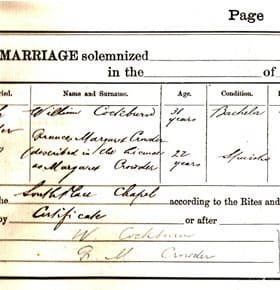 Page
MARRIAGE solemnized
in the of
ried. Name and Surname. Age. Condition.
William Cockburn 31 years Bachelor
Margaret Crowder
(described in the license 22 years Spinster
as Margaret Crowder
the South Place Chapel according to the Rites and
by Certificate or after
W Cockburn
M Crowder